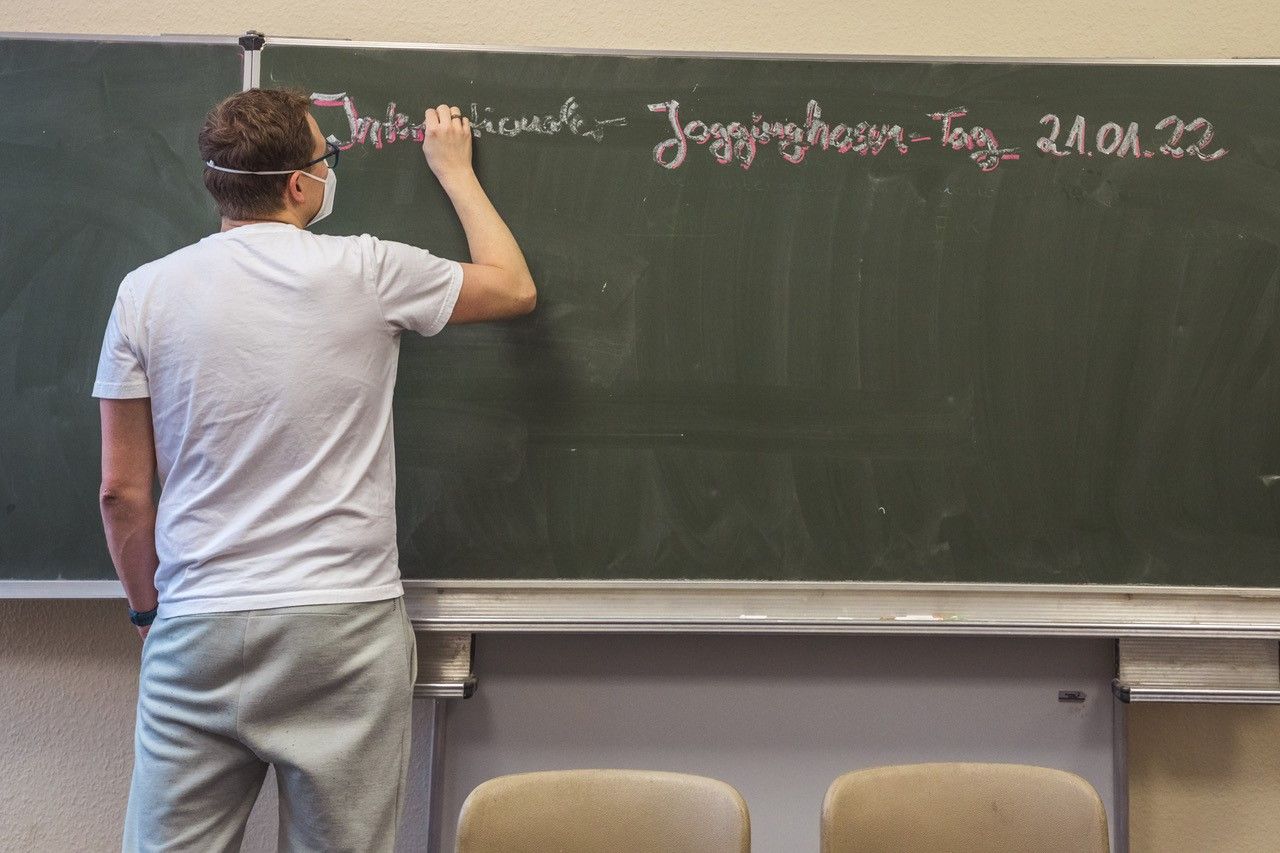 Internationaler Jogginghosen-Tag 21.01.22